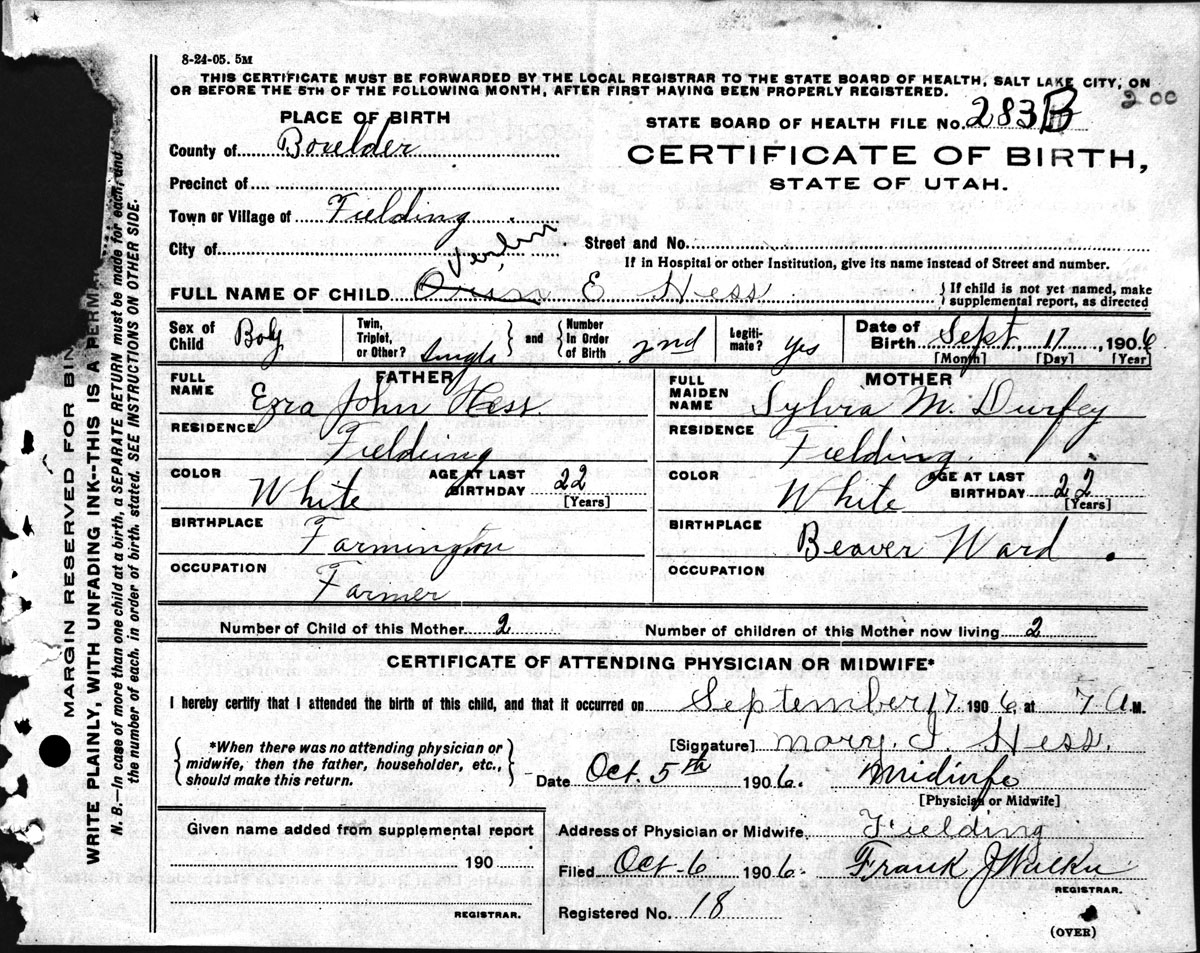 8-24-05. 5M
THIS CERTIFICATE MUST BE FORWARDED BY THE LOCAL REGISTRAR TO THE STATE BOARD OF HEALTH, SALT LAKE CITY, ON
OR BEFORE THE 5TH OF THE FOLLOWING MONTH, AFTER FIRST HAVING BEEN PROPERLY REGISTERED.
2 00
PLACE OF BIRTH
STATE BOARD OF HEALTH FILE No. 283 B
County of Boxelder
CERTIFICATE OF BIRTH,
STATE OF UTAH.
Precinct of
Town or Village of Fielding
City of
Street and No.
If in Hospital or other Institution, give its name instead of Street and number.
Verlin
FULL NAME OF CHILD Orson E Hess
} If child is not yet named, make
supplemental report, as directed
Sex of Child Boy
Twin, Triplet, or Other? Single } and { Number In Order of Birth 2nd
Legiti-mate? yes
Date of Birth Sept. 17, 1906
[Month] [Day] [Year]
FATHER
FULL NAME Ezra John Hess
RESIDENCE Fielding
COLOR White
AGE AT LAST BIRTHDAY 22
[Years]
BIRTHPLACE Farmington
OCCUPATION Farmer
MOTHER
FULL MAIDEN NAME Sylvia M. Durfey
RESIDENCE Fielding.
COLOR White
AGE AT LAST BIRTHDAY 22
[Years]
BIRTHPLACE Beaver Ward.
OCCUPATION
Number of Child of this Mother 2
Number of children of this Mother now living 2
CERTIFICATE OF ATTENDING PHYSICIAN OR MIDWIFE*
I hereby certify that I attended the birth of this child, and that it occurred on September 17 1906, at 7 A M.
{ *When there was no attending physician or
midwife, then the father, householder, etc.,
should make this return. }
[Signature] Mary. I. Hess.
Date Oct. 5th 1906. Midwife
[Physician or Midwife]
Given name added from supplemental report
190
REGISTRAR.
Address of Physician or Midwife, Fielding
Filed Oct-6 1906. Frank J Walker
REGISTRAR.
Registered No. 18
(OVER)
MARGIN RESERVED FOR BIN
WRITE PLAINLY, WITH UNFADING INK--THIS IS A PERM
N. B.—In case of more than one child at a birth, a SEPARATE RETURN must be made for each, and
the number of each, in order of birth, stated. SEE INSTRUCTIONS ON OTHER SIDE.